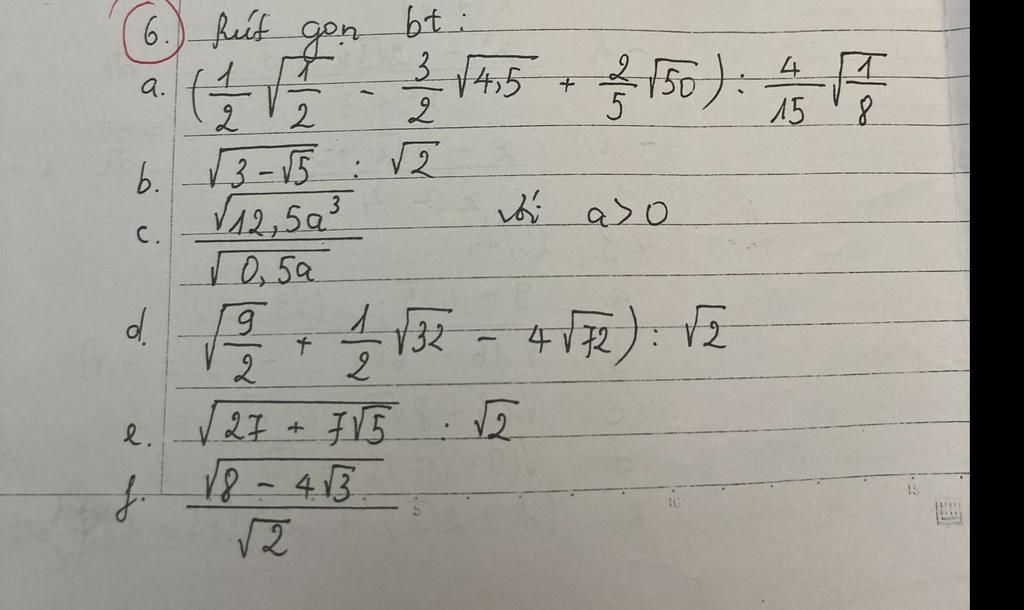 6. Rút gọn bt :
a. (1/2 √(1/2) - 3/2 √4,5 + 2/5 √50) : 4/15 √(1/8)
b. √(3-√5) : √2
c. √(12,5a³) / √(0,5a) với a>0
d. √(9/2) + 1/2 √32 - 4√72) : √2
e. √(27 + 7√5) : √2
f. √(8 - 4√3) / √2
5 10 15